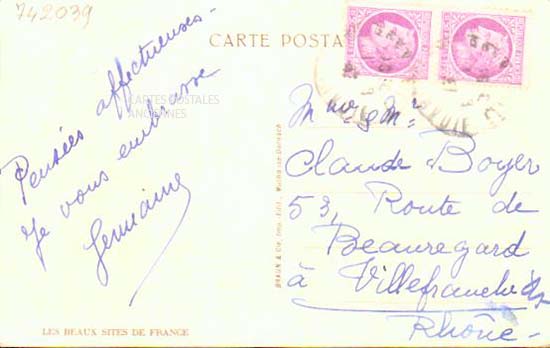 742039
CARTE POSTA
Pensées affectueuses-
Je vous embrasse
Germaine
CARTES POSTALES
ANCIENNES
Mme & Mr
Claude Boyer
53, Route de
Beauregard
à Villefranche s/s
Rhône-
BRAUN & Cie, Imp.-Edit., Mulhouse-Dornach
LES BEAUX SITES DE FRANCE